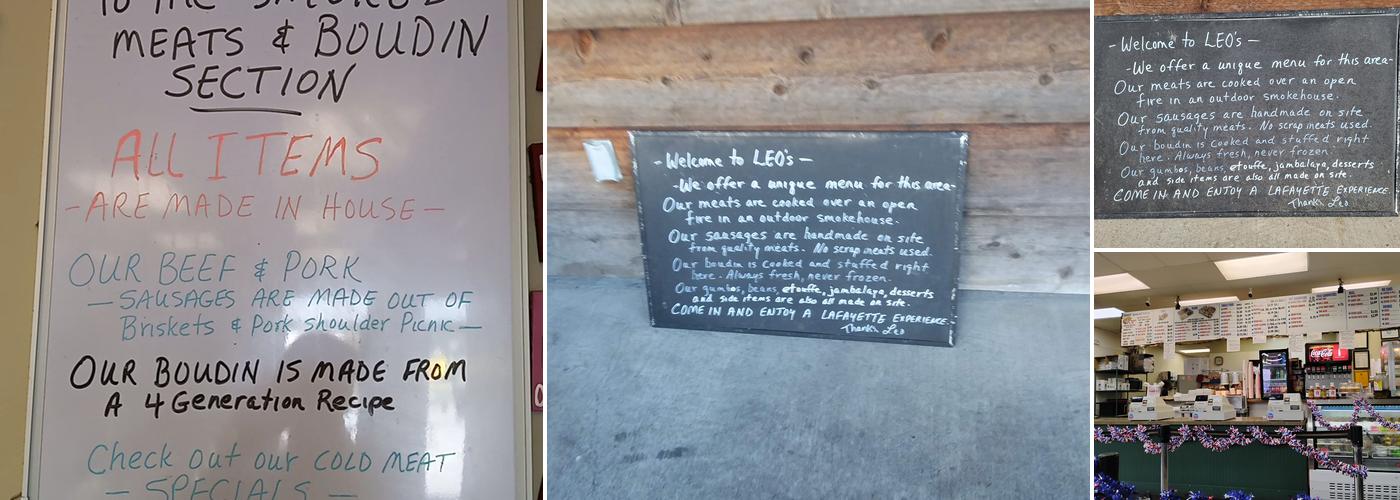 MEATS & BOUDIN
SECTION
ALL ITEMS
- ARE MADE IN HOUSE -
OUR BEEF & PORK
- SAUSAGES ARE MADE OUT OF
Briskets & Pork shoulder Picnic -
OUR BOUDIN IS MADE FROM
A 4 Generation Recipe
Check out our COLD MEAT
- SPECIALS -
- Welcome to LEO's -
- We offer a unique menu for this area-
Our meats are cooked over an open
fire in an outdoor smokehouse.
Our sausages are handmade on site
from quality meats. No scrap meats used.
Our boudin is Cooked and stuffed right
here. Always fresh, never frozen.
Our gumbos, beans, etouffe, jambalaya, desserts
and side items are also all made on site.
COME IN AND ENJOY A LAFAYETTE EXPERIENCE.
Thanks Leo
- Welcome to LEO's -
- We offer a unique menu for this area-
Our meats are cooked over an open
fire in an outdoor smokehouse.
Our sausages are handmade on site
from quality meats. No scrap meats used.
Our boudin is Cooked and stuffed right
here. Always fresh, never frozen.
Our gumbos, beans, etouffe, jambalaya, desserts
and side items are also all made on site.
COME IN AND ENJOY A LAFAYETTE EXPERIENCE.
Thanks Leo
Coca-Cola